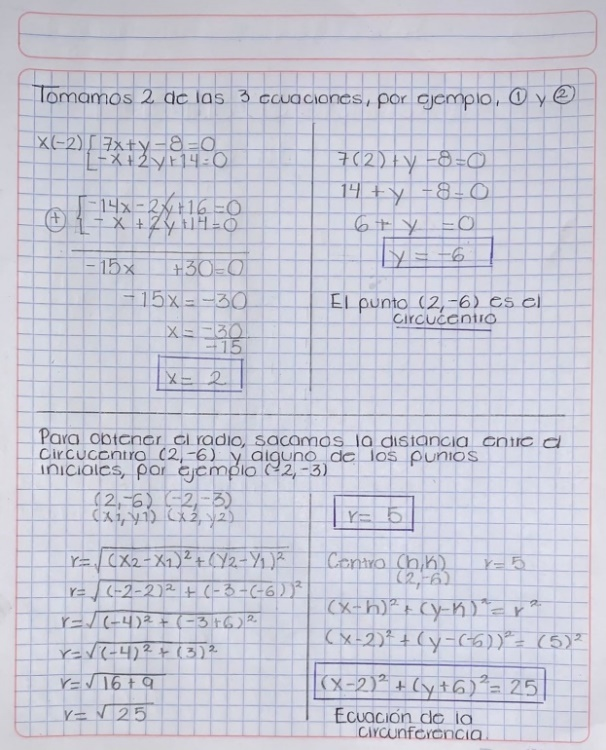 Tomamos 2 de las 3 ecuaciones, por ejemplo, ① y ②
x(-2) [ 7x+y-8=0
[ -x+2y+14=0
-14x-2y+16=0
⊕ [ -x+2y+14=0
-15x +30=0
-15x=-30
x= -30
-15
x= 2
7(2)+y-8=0
14+y-8=0
6+y =0
y=-6
El punto (2,-6) es el
circucentro
Para obtener el radio, sacamos la distancia entre el
circucentro (2,-6) y alguno de los puntos
iniciales, por ejemplo (-2,-3)
(2,-6) (-2,-3)
(x1,y1) (x2,y2)
r=√(x2-x1)²+(y2-y1)²
r=√(-2-2)²+(-3-(-6))²
r=√(-4)²+(-3+6)²
r=√(-4)²+(3)²
r=√16+9
r=√25
r= 5
Centro (h,k) r=5
(2,-6)
(x-h)²+(y-k)²=r²
(x-2)²+(y-(-6))²=(5)²
(x-2)²+(y+6)²=25
Ecuación de la
circunferencia.